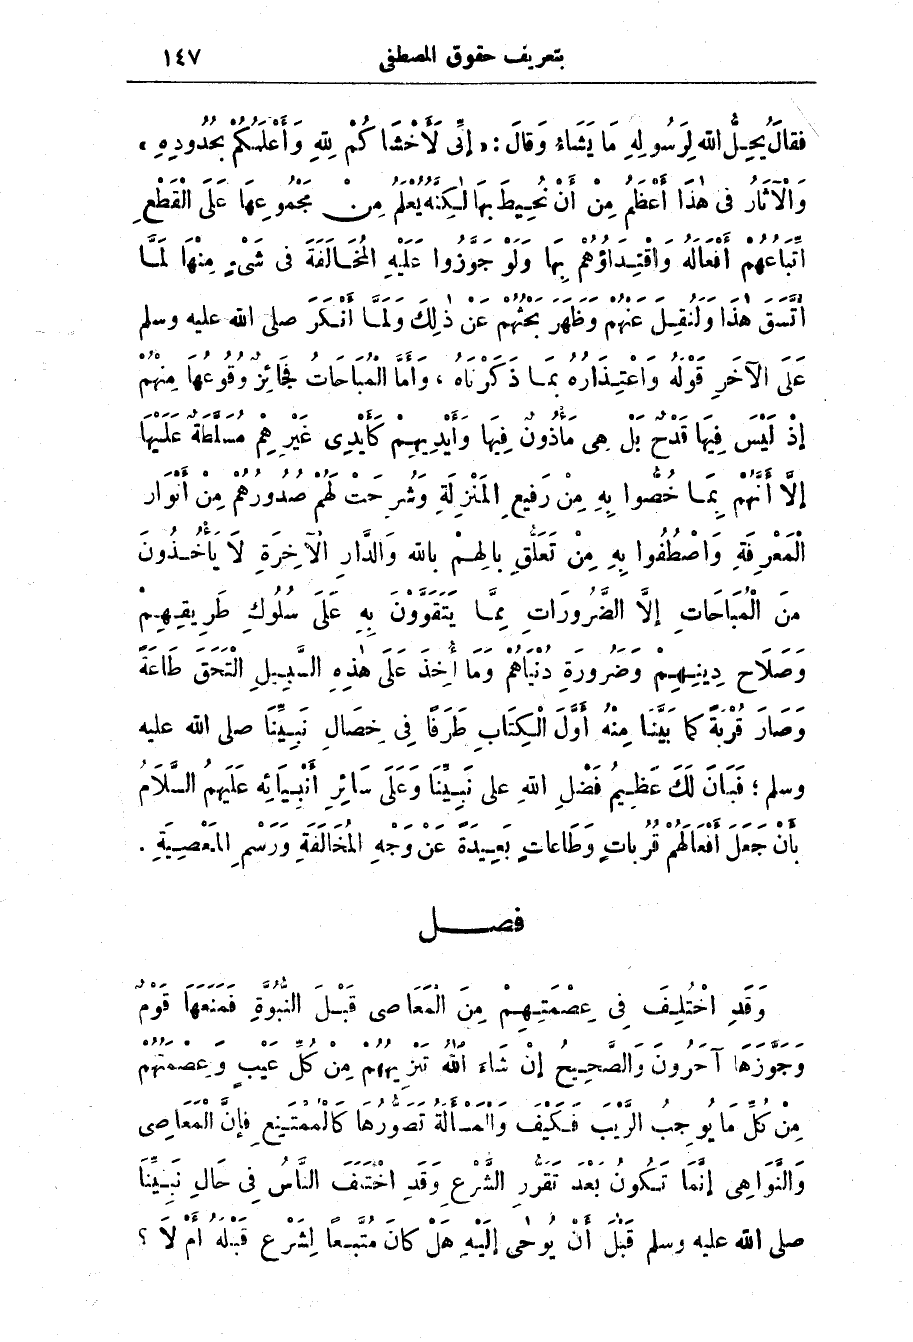 بتعريف حقوق المصطفى ١٤٧
فقالَ يُحِلُّ اللهُ لِرَسُولِهِ مَا يَشَاءُ وَقَالَ : « إِنِّى لَأَخْشَاكُمْ لِلّٰهِ وَأَعْلَمُكُمْ بِحُدُودِهِ »
وَالْآثَارُ فى هٰذَا أَعْظَمُ مِنْ أَنْ نُحِيطَ بِهَا لٰكِنَّهُ يُعْلَمُ مِنْ مَجْمُوعِهَا عَلَى الْقَطْعِ
اتِّبَاعُهُمْ أَفْعَالَهُ وَاقْتِدَاؤُهُمْ بِهَا وَلَوْ جَوَّزُوا عَلَيْهِ الْمُخَالَفَةَ فى شَىْءٍ مِنْهَا لَمَا
اتَّسَقَ هٰذَا وَلَنُقِلَ عَنْهُمْ وَظَهَرَ بَحْثُهُمْ عَنْ ذٰلِكَ وَلَمَا أَنْكَرَ صلى الله عليه وسلم
عَلَى الْآخَرِ قَوْلَهُ وَاعْتِذَارَهُ بِمَا ذَكَرْنَاهُ ، وَأَمَّا الْمُبَاحَاتُ فَجَائِزٌ وُقُوعُهَا مِنْهُمْ
إِذْ لَيْسَ فِيهَا قَدْحٌ بَلْ هِىَ مَأْذُونٌ فِيهَا وَأَيْدِيهِمْ كَأَيْدِى غَيْرِهِمْ مُسَلَّطَةٌ عَلَيْهَا
إِلَّا أَنَّهُمْ بِمَا خُصُّوا بِهِ مِنْ رَفِيعِ الْمَنْزِلَةِ وَشُرِحَتْ لَهُمْ صُدُورُهُمْ مِنْ أَنْوَارِ
الْمَعْرِفَةِ وَاصْطُفُوا بِهِ مِنْ تَعَلُّقِ بَالِهِمْ بالله وَالدَّارِ الْآخِرَةِ لَا يَأْخُذُونَ
مِنَ الْمُبَاحَاتِ إِلَّا الضَّرُورَاتِ مِمَّا يَتَقَوَّوْنَ بِهِ عَلَى سُلُوكِ طَرِيقِهِمْ
وَصَلَاحِ دِينِهِمْ وَضَرُورَةِ دُنْيَاهُمْ وَمَا أُخِذَ عَلَى هٰذِهِ السَّبِيلِ الْتَحَقَ طَاعَةً
وَصَارَ قُرْبَةً كَمَا بَيَّنَّا مِنْهُ أَوَّلَ الْكِتَابِ طَرَفًا فِى خِصَالِ نَبِيِّنَا صلى الله عليه
وسلم ؛ فَبَانَ لَكَ عَظِيمُ فَضْلِ اللهِ على نَبِيِّنَا وَعَلَى سَائِرِ أَنْبِيَائِهِ عَلَيْهِمُ السَّلَامُ
بِأَنْ جَعَلَ أَفْعَالَهُمْ قُرُبَاتٍ وَطَاعَاتٍ بَعِيدَةً عَنْ وَجْهِ الْمُخَالَفَةِ وَرَسْمِ الْمَعْصِيَةِ .
فصـــل
وَقَدِ اخْتُلِفَ فِى عِصْمَتِهِمْ مِنَ الْمَعَاصِى قَبْلَ النُّبُوَّةِ فَمَنَعَهَا قَوْمٌ
وَجَوَّزَهَا آخَرُونَ وَالصَّحِيحُ إِنْ شَاءَ اللهُ تَنْزِيهُهُمْ مِنْ كُلِّ عَيْبٍ وَعِصْمَتُهُمْ
مِنْ كُلِّ مَا يُوجِبُ الرَّيْبَ فَكَيْفَ وَالْمَسْأَلَةُ تَصَوُّرُهَا كَالْمُمْتَنِعِ فإنَّ الْمَعَاصِى
وَالنَّوَاهِى إِنَّمَا تَكُونُ بَعْدَ تَقَرُّرِ الشَّرْعِ وَقَدِ اخْتَلَفَ النَّاسُ فِى حَالِ نَبِيِّنَا
صلى الله عليه وسلم قَبْلَ أَنْ يُوحٰى إِلَيْهِ هَلْ كَانَ مُتَّبِعًا لِشَرْعٍ قَبْلَهُ أَمْ لَا ؟